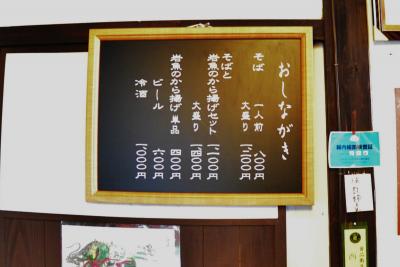 おしながき
そば 一人前 八〇〇円
大盛り 一、二〇〇円
そばと
岩魚のから揚げセット 一、一〇〇円
大盛り 一、四〇〇円
岩魚のから揚げ 単品 四〇〇円
ビール 六〇〇円
冷酒 一、〇〇〇円